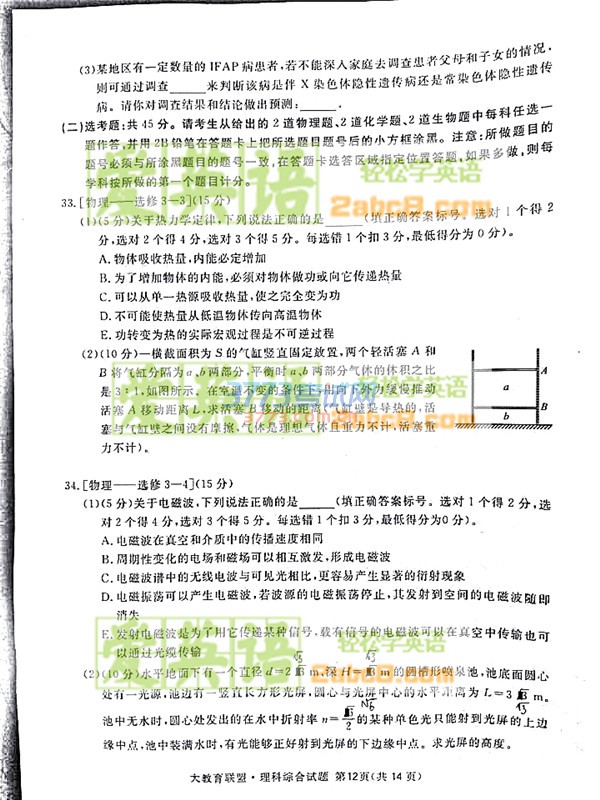 (3)某地区有一定数量的IFAP病患者,若不能深入家庭去调查患者父母和子女的情况,
则可通过调查______来判断该病是伴X染色体隐性遗传病还是常染色体隐性遗传
病。请你对调查结果和结论做出预测:______.
(二)选考题:共45分。请考生从给出的2道物理题、2道化学题、2道生物题中每科任选一
题作答,并用2B铅笔在答题卡上把所选题目题号后的小方框涂黑。注意:所做题目的
题号必须与所涂黑题目的题号一致,在答题卡选答区域指定位置答题,如果多做,则每
学科按所做的第一个题目计分。
33.[物理——选修3—3](15分)
(1)(5分)关于热力学定律,下列说法正确的是______(填正确答案标号。选对1个得2
分,选对2个得4分,选对3个得5分。每选错1个扣3分,最低得分为0分)。
A.物体吸收热量,内能必定增加
B.为了增加物体的内能,必须对物体做功或向它传递热量
C.可以从单一热源吸收热量,使之完全变为功
D.不可能使热量从低温物体传向高温物体
E.功转变为热的实际宏观过程是不可逆过程
(2)(10分)一横截面积为S的气缸竖直固定放置,两个轻活塞A和
B将气缸分隔为a、b两部分,平衡时a、b两部分气体的体积之比
是3:1,如图所示。在室温不变的条件下,用向下外力缓慢推动
活塞A移动距离L,求活塞B移动的距离(气缸壁是导热的,活
塞与气缸壁之间没有摩擦,气体是理想气体且重力不计,活塞重
力不计)。
A
a
B
b
34.[物理——选修3—4](15分)
(1)(5分)关于电磁波,下列说法正确的是______(填正确答案标号。选对1个得2分,选
对2个得4分,选对3个得5分。每选错1个扣3分,最低得分为0分)。
A.电磁波在真空和介质中的传播速度相同
B.周期性变化的电场和磁场可以相互激发,形成电磁波
C.电磁波谱中的无线电波与可见光相比,更容易产生显著的衍射现象
D.电磁振荡可以产生电磁波,若波源的电磁振荡停止,其发射到空间的电磁波随即
消失
E.发射电磁波是为了用它传递某种信号,载有信号的电磁波可以在真空中传输也可
以通过光缆传输
(2)(10分)水平地面下有一个直径d=2√3 m,深H=√3 m的圆槽形喷泉池,池底面圆心
处有一光源,池边有一竖直长方形光屏,圆心与光屏中心的水平距离为L=3√3 m。
池中无水时,圆心处发出的在水中折射率n=√6/2的某种单色光只能射到光屏的上边
缘中点,池中装满水时,有光能够正好射到光屏的下边缘中点。求光屏的高度。
大教育联盟·理科综合试题 第12页(共14页)
爱英语
轻松学英语
2abc8.com